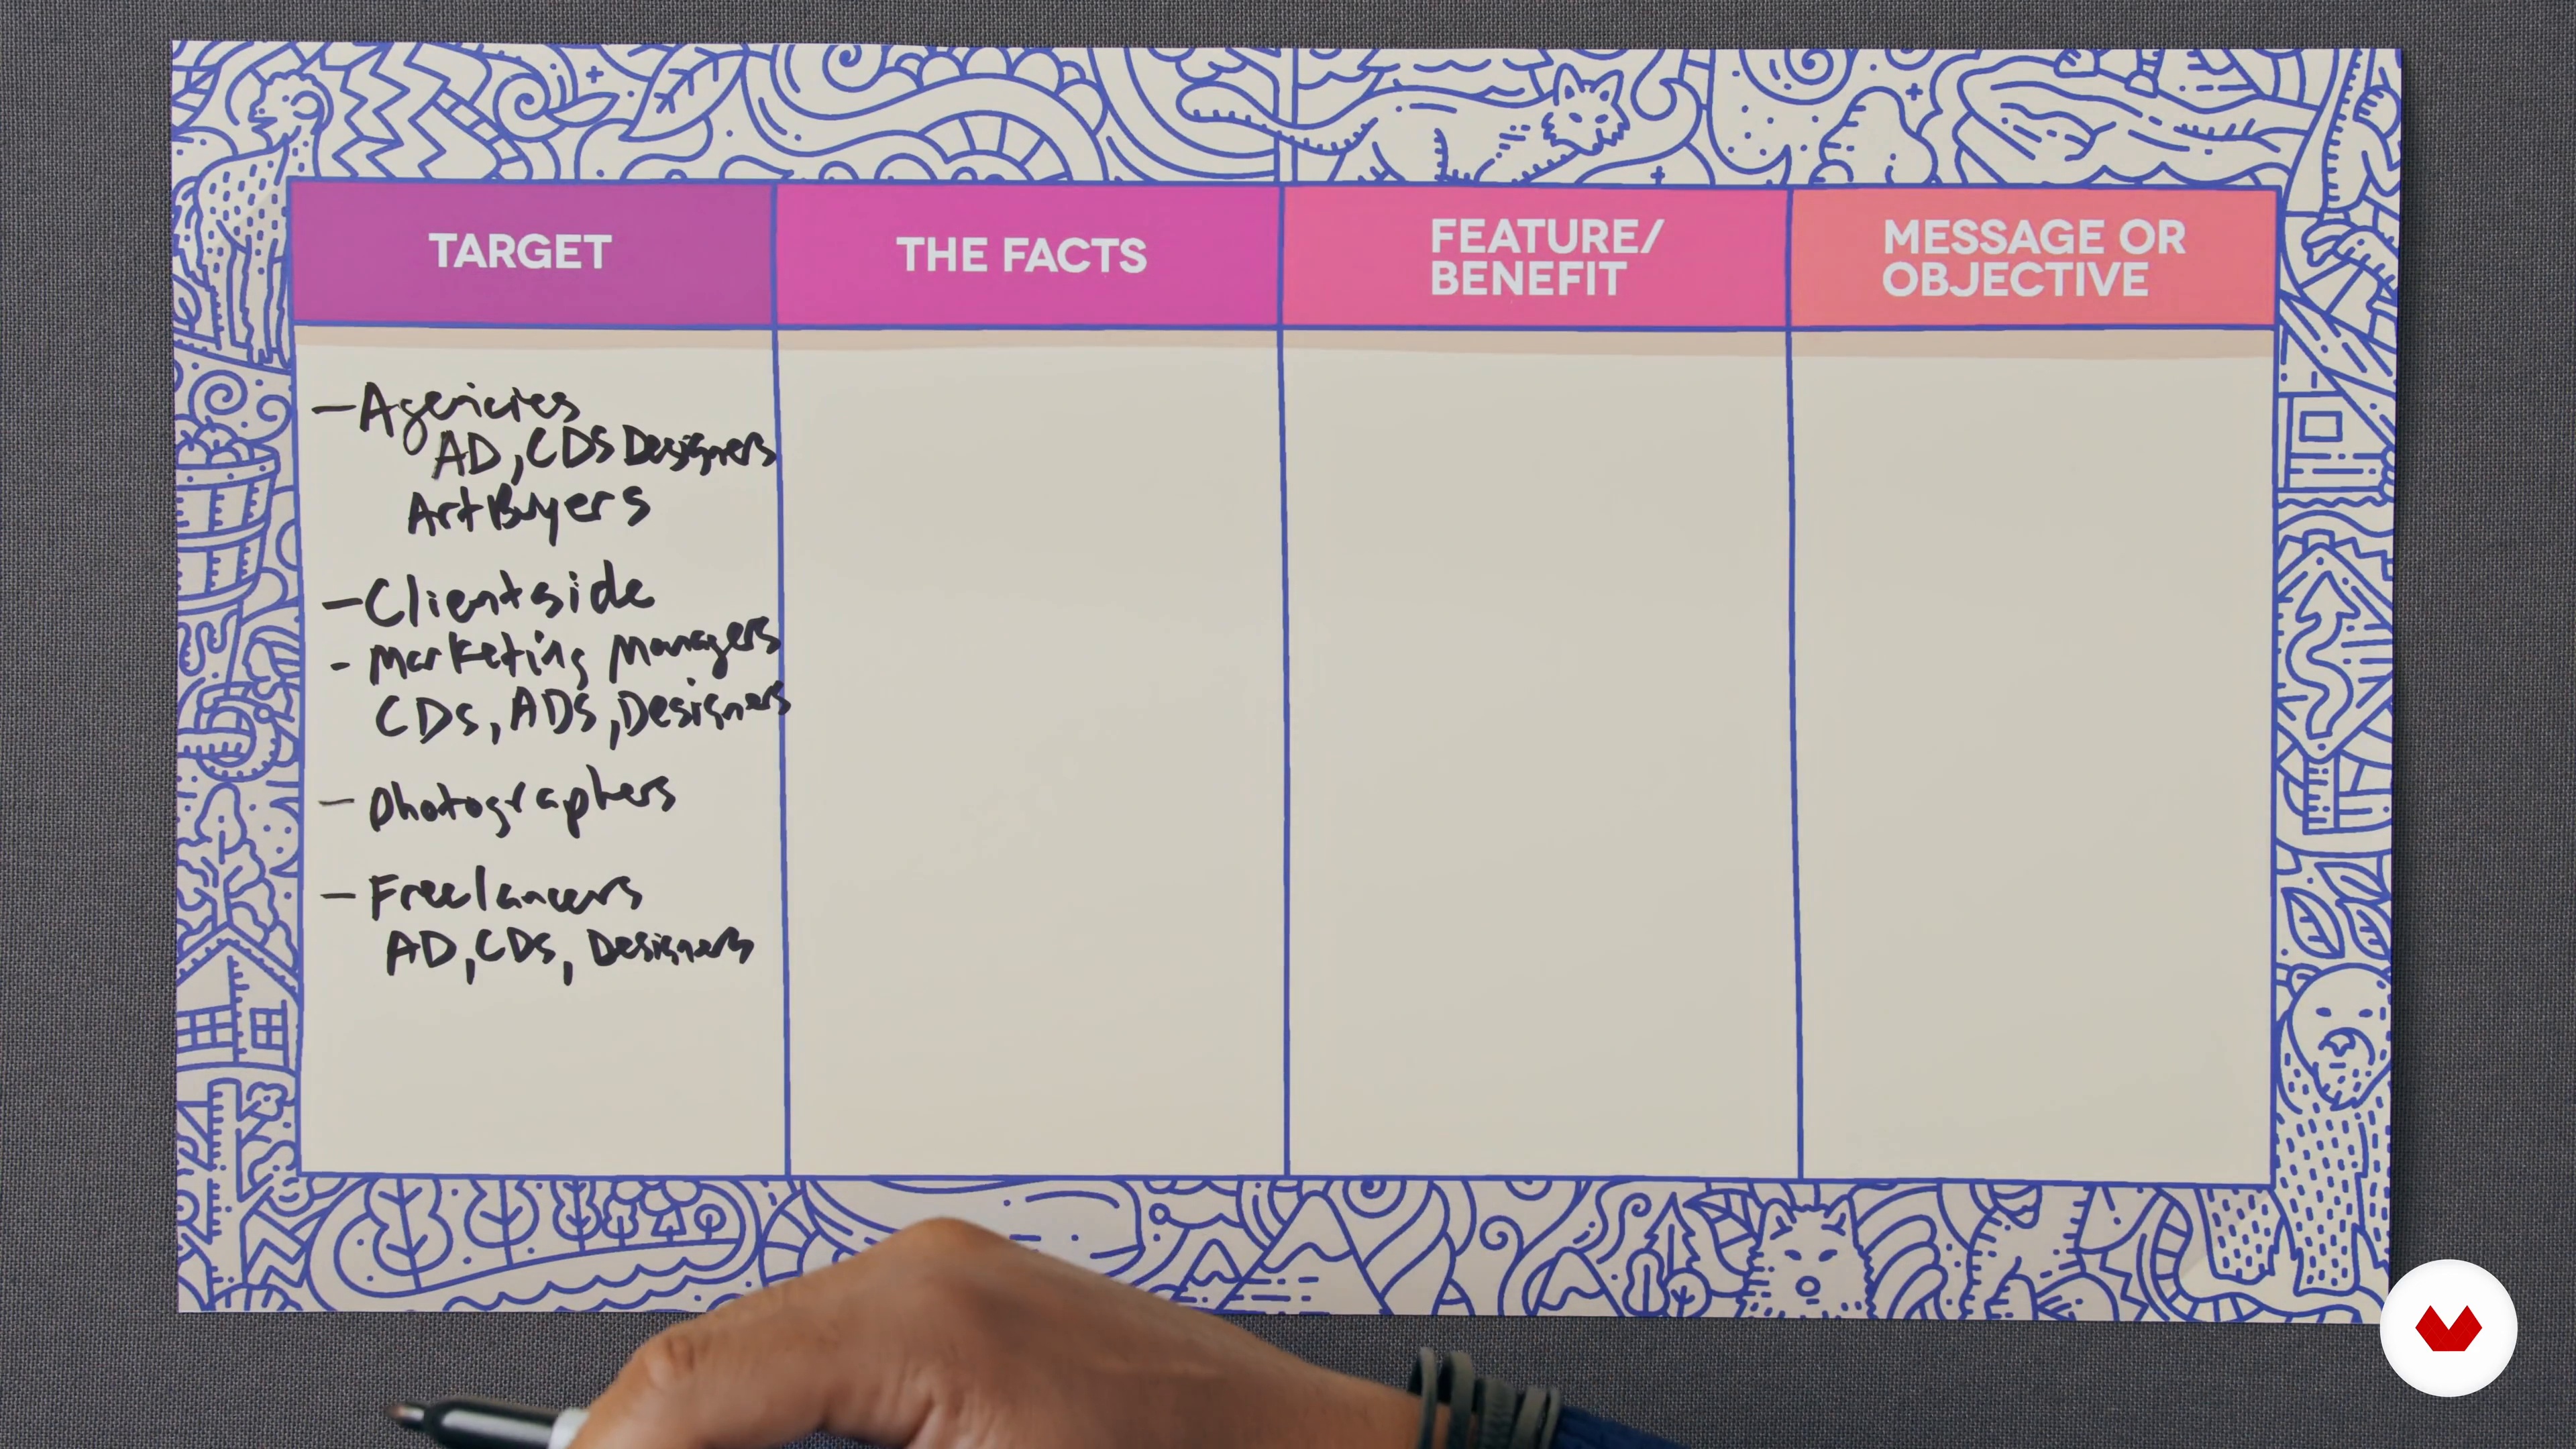 TARGET
THE FACTS
FEATURE/
BENEFIT
MESSAGE OR
OBJECTIVE
- Agencies
AD, CDS Designers
Art Buyers
- Clientside
- Marketing Managers
CDs, ADs, Designers
- Photographers
- Freelancers
AD, CDs, Designers